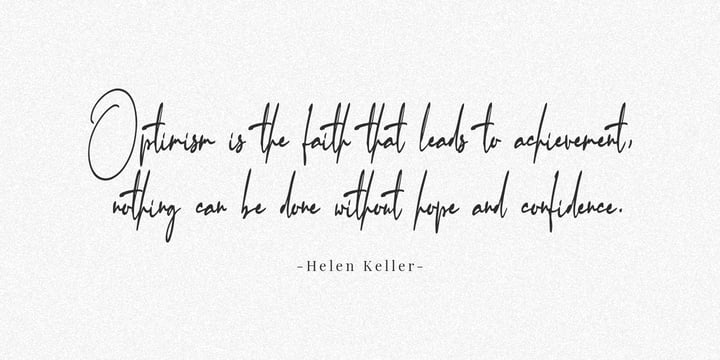 Optimism is the faith that leads to achievement,
nothing can be done without hope and confidence.
-Helen Keller-